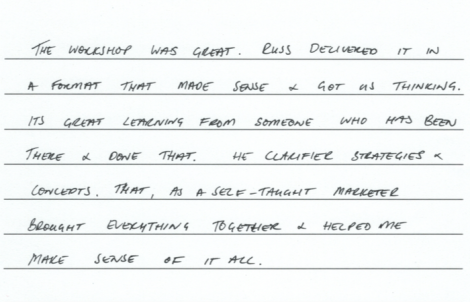 THE WORKSHOP WAS GREAT. RUSS DELIVERED IT IN
A FORMAT THAT MADE SENSE & GOT US THINKING.
ITS GREAT LEARNING FROM SOMEONE WHO HAS BEEN
THERE & DONE THAT. HE CLARIFIER STRATEGIES &
CONCEPTS. THAT, AS A SELF-TAUGHT MARKETER
BROUGHT EVERYTHING TOGETHER & HELPED ME
MAKE SENSE OF IT ALL.